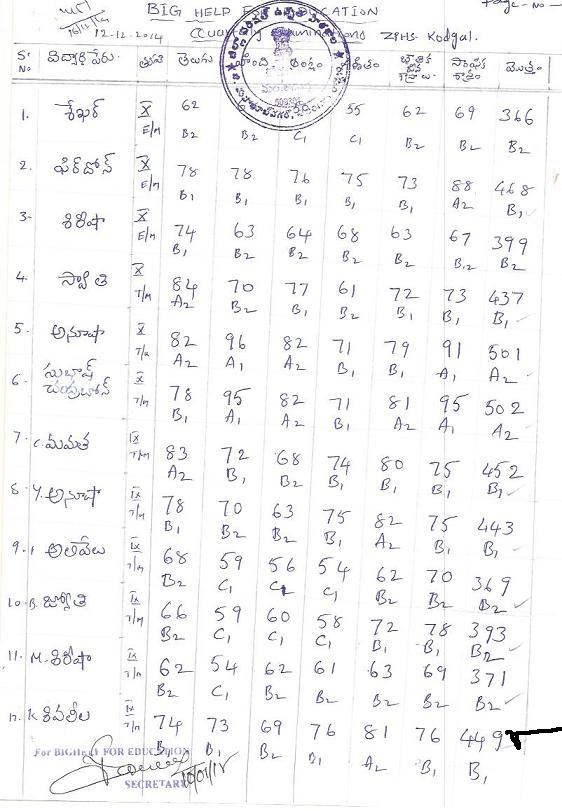 16/12/14
BIG HELP FOR EDUCATION
12-12-2014 Quarterly Examinations ZPHS. Kodgal.
Sr No విద్యార్థి పేరు తరగతి తెలుగు హింది ఇంగ్లీషు గణితం భౌతిక సాంఘిక శాస్త్రం మొత్తం
1. శేఖర్ X 62 55 62 69 366
E/M B2 B2 C1 C1 B2 B2 B2
2. ఫిర్దోస్ X 78 78 76 75 73 88 468
E/M B1 B1 B1 B1 B1 A2 B1
3- శిరీషా X 74 63 64 68 63 67 399
E/M B1 B2 B2 B2 B2 B2 B2
4. స్వాతి X 84 70 77 61 72 73 437
T/M A2 B2 B1 B2 B1 B1 B1
5. అనూషా X 82 96 82 71 79 91 501
T/M A2 A1 A2 B1 B1 A1 A2
6. సుభాష్ చంద్రబోస్ X 78 95 82 71 81 95 502
T/M B1 A1 A2 B1 A2 A1 A2
7. C. మమత IX 83 72 68 74 80 75 452
T/M A2 B1 B2 B1 B1 B1 B1
8. Y. అనూషా IX 78 70 63 75 82 75 443
T/M B1 B2 B2 B1 A2 B1 B1
9. అలివేలు IX 68 59 56 54 62 70 369
T/M B2 C1 C1 C1 B2 B2 B2
10. B. జ్యోతి IX 66 59 60 58 72 78 393
T/M B2 C1 C1 C1 B1 B1 B2
11. M. శిరీషా IX 62 54 62 61 63 69 371
T/M B2 C1 B2 B2 B2 B2 B2
12. K శివలీల IX 74 73 69 76 81 76 449
T/M B1 B1 B2 B1 A2 B1 B1
For BIGHelp FOR EDUCATION
SECRETARY